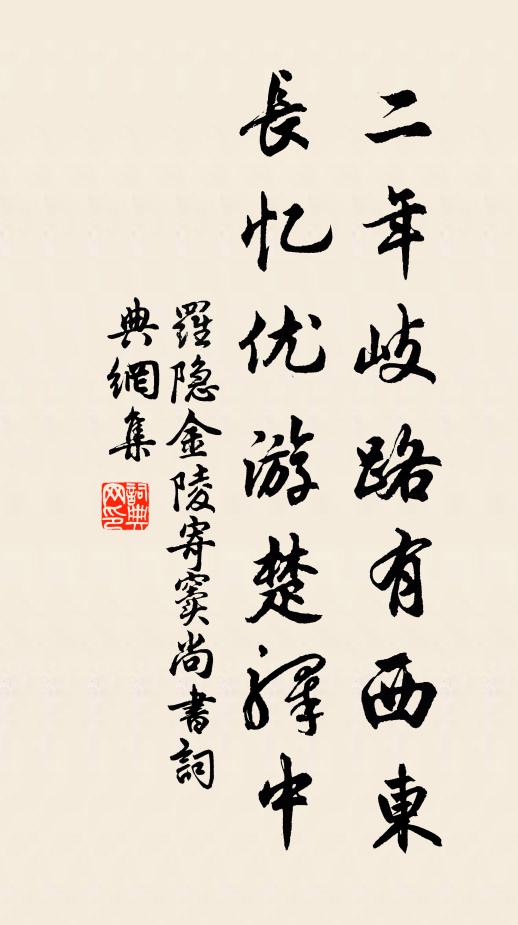 二年歧路有西東
長忆优游楚驿中
羅隐金陵寄窦尚書詞
典網集
詞典
网印